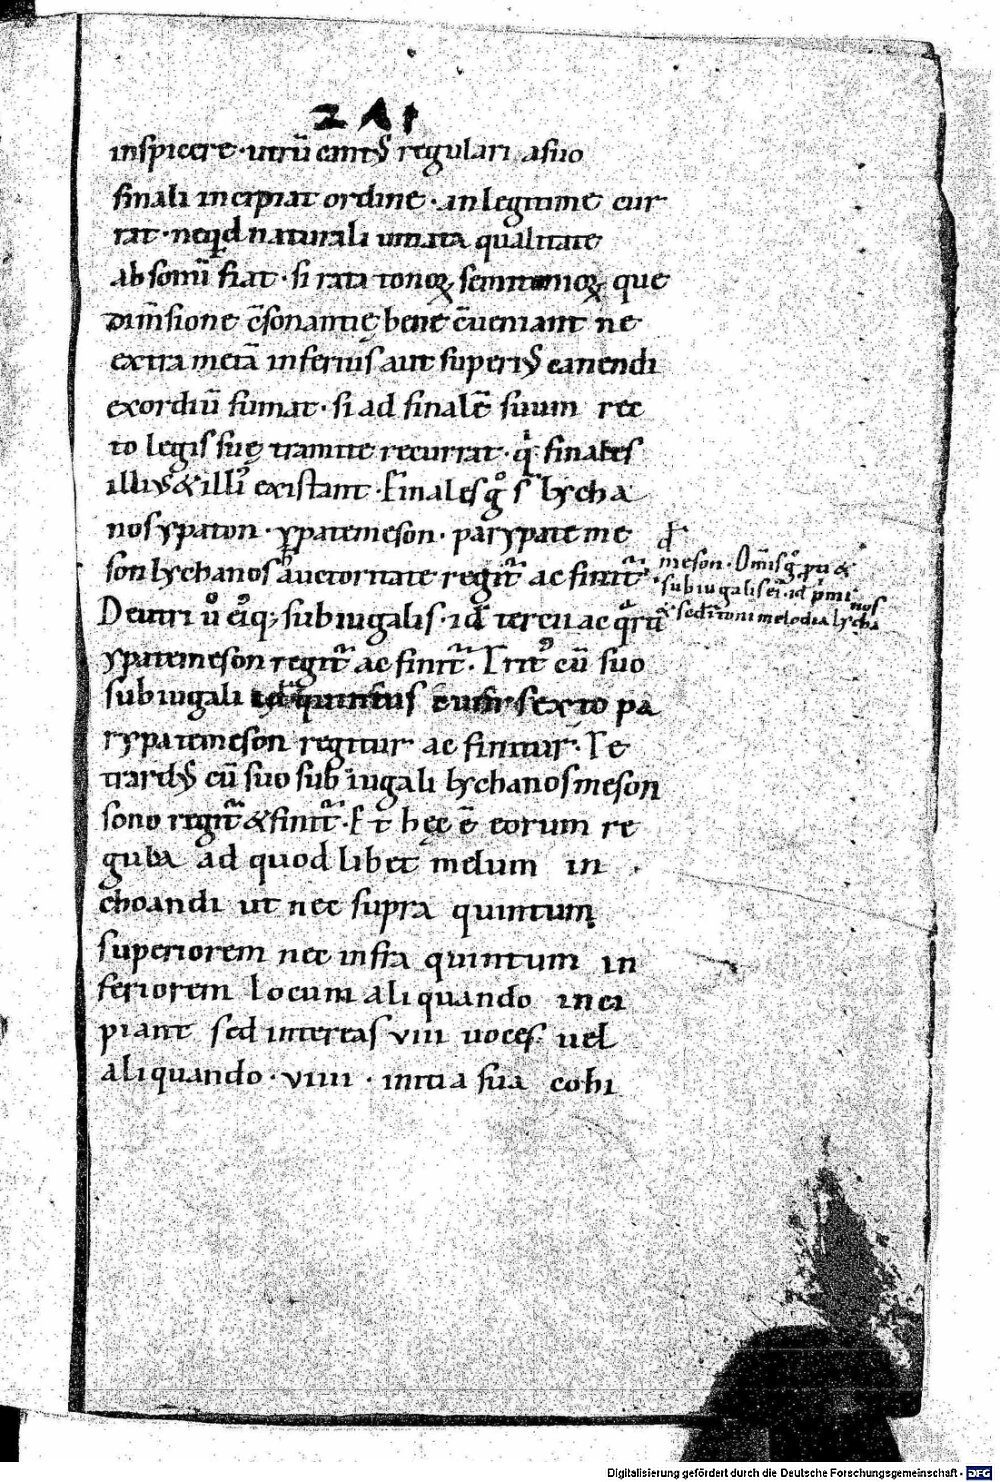 inspicere · utrū cantꝰ regulari a suo
finali incipiat ordine · an legitime cur
rat · ne qd naturali unita qualitate
absonū fiat · si rata tonoꝝ, semitonioꝝ, que
dim̄sione c̄sonantię bene c̄ueniant ne
extra metā inferius aut superiꝰ canendi
exordiū sumat · si ad finalē suum rec
to legis suę tramite recurrat · finales
illiꝰ & illi existant · Finales g° s̄ lycha
nos ypaton · ypatemeson · parypateme
son lychanos auctoritate regit᷑ ac finit᷑
meson · Om̄is g° &
subiugalis ei · id p̄mi
& sedi toni melodia lycha
nos
Deutri ū eiq; subiugalis · id tercii ac q̄rti
ypatemeson regit᷑ ac finit᷑ · Trit᷒ cū suo
subiugali id quintus cum sexto pa
rypatemeson regitur ac finitur · Te
trardꝰ cū suo subiugali lychanos meson
sono regit᷑ & finit᷑ · Et hęc ē eorum re
gula ad quodlibet melum in
choandi ut nec supra quintum
superiorem nec infra quintum in
feriorem locum aliquando inci
piant sed inter eas viii uoces uel
aliquando · viiii · initia sua cohi
Digitalisierung gefördert durch die Deutsche Forschungsgemeinschaft - DFG